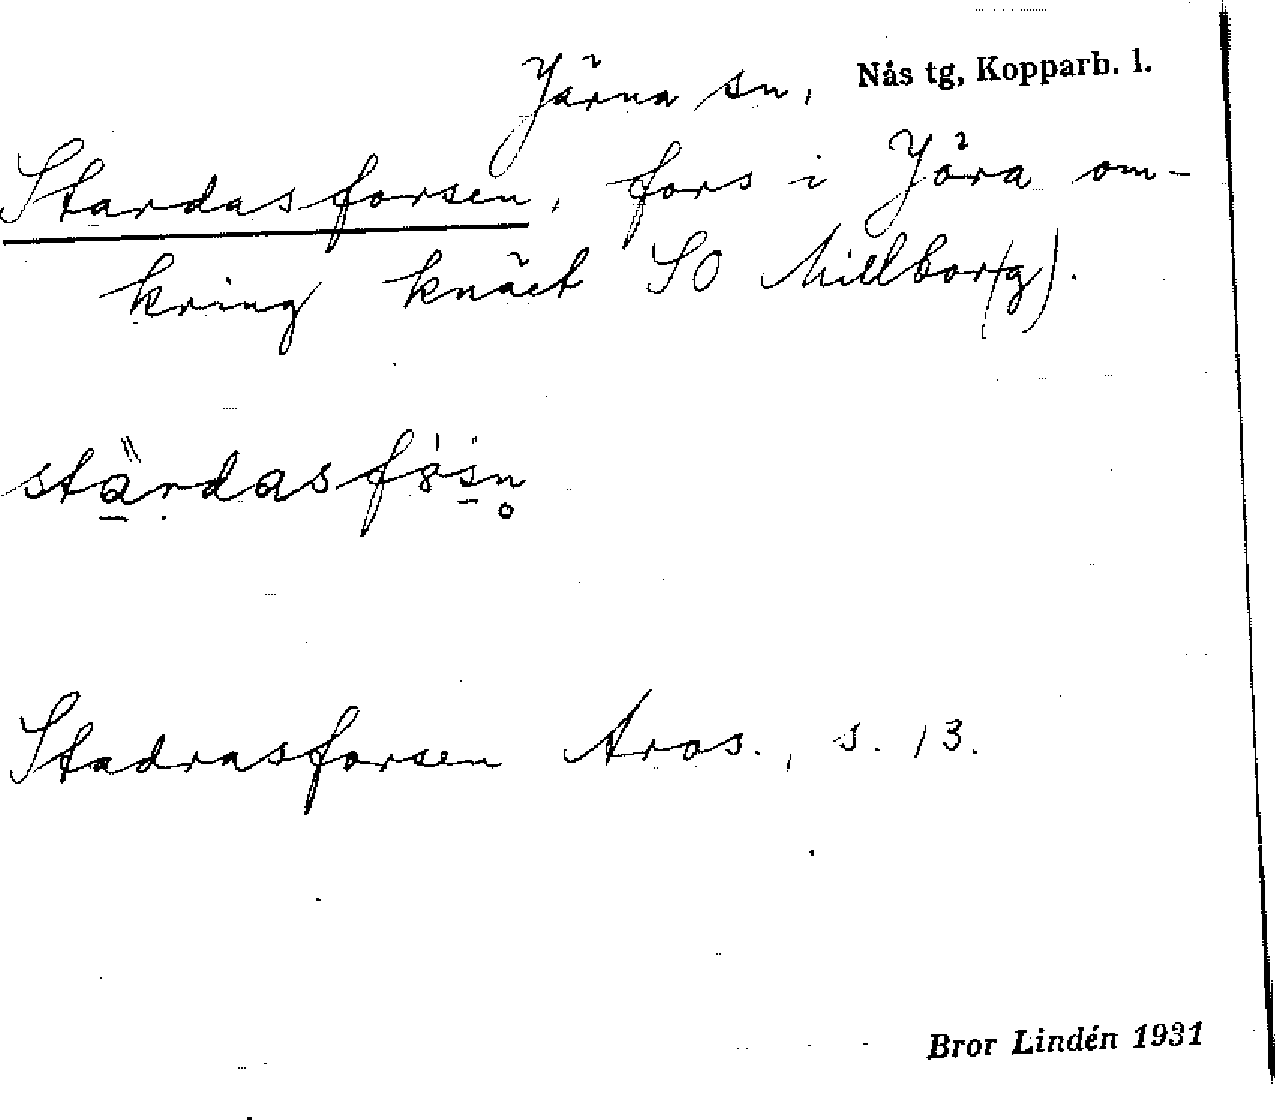 Järna sn, Nås tg, Kopparb. l.
Stardasforsen, fors i Jöra om-
kring knäet SO Millbor(g).
stärdasfösn̥
Stadrasforsen Aros., s. 13.
Bror Lindén 1931